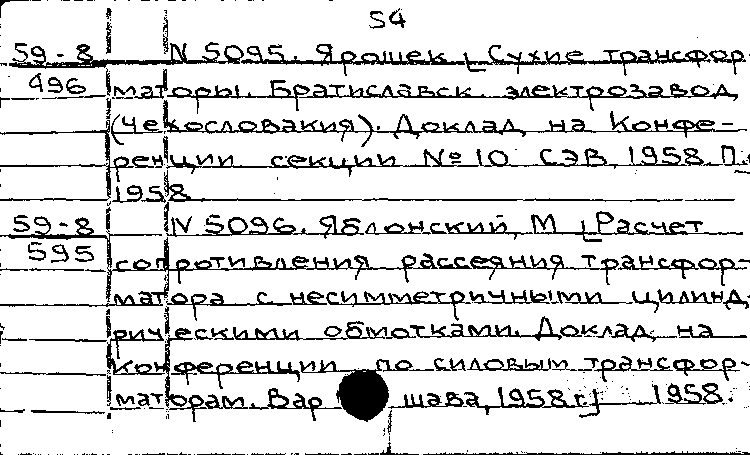 54
59-8 N 5095. Ярошек [Сухие трансфор-
496 маторы. Братиславск. электрозавод,
(Чехословакия). Доклад на Конфе-
ренции секции №10 СЭВ, 1958. П.
1958
59-8 N 5096. Яблонский, М [Расчет
595 сопротивления рассеяния трансфор-
матора с несимметричными цилинд,
рическими обмотками. Доклад на
Конференции по силовым трансфор-
маторам. Вар шава, 1958г.] 1958.